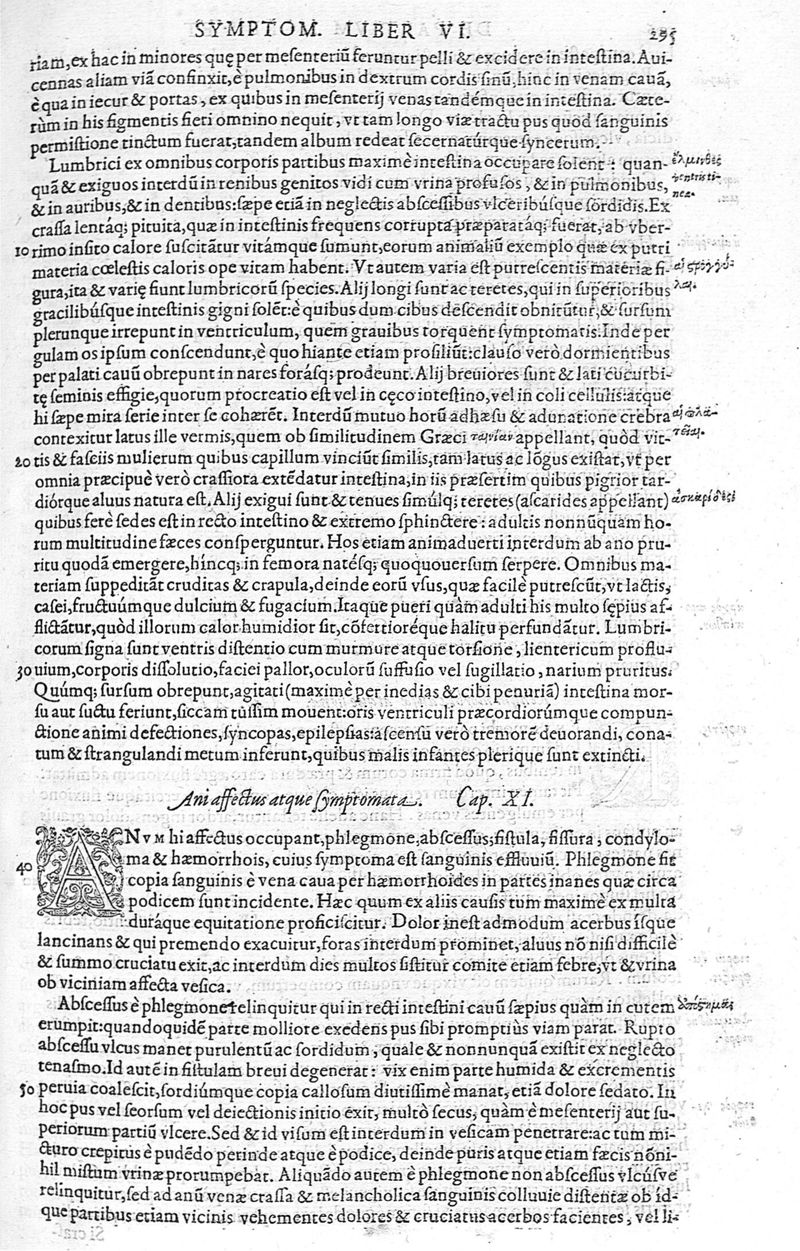 SYMPTOM. LIBER VI. 295
riam, ex hac in minores quę per mesenteriũ feruntur pelli & excidere in intestina. Aui-
cennas aliam viã confinxit, è pulmonibus in dextrum cordis sinũ, hinc in venam cauã,
è qua in iecur & portas, ex quibus in mesenterij venas tandémque in intestina. Cæte-
rùm in his figmentis fieri omnino nequit, vt tam longo viæ tractu pus quod sanguinis
permistione tinctum fuerat, tandem album redeat secernatúrque syncerum.
Lumbrici ex omnibus corporis partibus maximè intestina occupare solent: quan- ἕλμινθες
quã & exiguos interdũ in renibus genitos vidi cum vrina profusos, & in pulmonibus,
& in auribus, & in dentibus: sæpe etiã in neglectis abscessibus vlceribúsque sordidis. Ex
crassa lentáq; pituita, quæ in intestinis frequens corrupta præparatáq; fuerat, ab vber-
10 rimo insito calore suscitãtur vitámque sumunt, eorum animaliũ exemplo quæ ex putri
materia cœlestis caloris ope vitam habent. Vt autem varia est putrescentis materiæ fi-
gura, ita & varię fiunt lumbricorũ species. Alij longi sunt ac teretes, qui in superioribus
gracilibúsque intestinis gigni solẽt: è quibus dum cibus descendit obnitũtur, & sursum
plerunque irrepunt in ventriculum, quem grauibus torquent symptomatis. Inde per
gulam os ipsum conscendunt, è quo hiante etiam prosiliũt: clauso verò dormientibus
per palati cauũ obrepunt in nares forásq; prodeunt. Alij breuiores sunt & lati cucurbi-
tę seminis effigie, quorum procreatio est vel in cęco intestino, vel in coli cellulis: atque
hi sæpe mira serie inter se cohærẽt. Interdũ mutuo horũ adhæsu & adunatione crebra
contexitur latus ille vermis, quem ob similitudinem Græci ταινίαν appellant, quòd vit-
20 tis & fasciis mulierum quibus capillum vinciũt similis, tam latus ac lõgus existat, vt per
omnia præcipuè verò crassiora extẽdatur intestina, in iis præsertim quibus pigrior tar-
diórque aluus natura est, Alij exigui sunt & tenues simúlq; teretes (ascarides appellant) ἀσκαρίδες
quibus ferè sedes est in recto intestino & extremo sphinctere: adultis nonnũquam ho-
rum multitudine fæces consperguntur. Hos etiam animaduerti interdum ab ano pru-
ritu quodã emergere, híncq; in femora natésq; quoquouersum serpere. Omnibus ma-
teriam suppeditãt cruditas & crapula, deinde eorũ vsus, quæ facilè putrescũt, vt lactis,
casei, fructuúmque dulcium & fugacium. Itaque pueri quàm adulti his multo sępius af-
flictãtur, quòd illorum calor humidior sit, cõfertioréque halitu perfundãtur. Lumbri-
corum signa sunt ventris distentio cum murmure atque torsione, lientericum proflu-
30 uium, corporis dissolutio, faciei pallor, oculorũ suffusio vel sugillatio, narium pruritus.
Quúmq; sursum obrepunt, agitati (maximè per inedias & cibi penuriã) intestina mor-
su aut suctu feriunt, siccam tussim mouent: oris ventriculi præcordiorúmque compun-
ctione animi defectiones, syncopas, epilepsias: ascensu verò tremorẽ deuorandi, cona-
tum & strangulandi metum inferunt, quibus malis infantes plerique sunt extincti.
Ani affectus atque symptomata. Cap. XI.
ANVM hi affectus occupant, phlegmone, abscessus, fistula, fissura, condylo-
40 ma & hæmorrhois, cuius symptoma est sanguinis effluuiũ. Phlegmone fit
copia sanguinis è vena caua per hæmorrhoides in partes inanes quæ circa
podicem sunt incidente. Hæc quum ex aliis causis tum maximè ex multa
duráque equitatione proficiscitur. Dolor inest admodum acerbus ísque
lancinans & qui premendo exacuitur, foras interdum prominet, aluus nõ nisi difficilè
& summo cruciatu exit, ac interdum dies multos sistitur comite etiam febre, vt & vrina
ob viciniam affecta vesica.
Abscessus è phlegmone relinquitur qui in recti intestini cauũ sæpius quàm in cutem
erumpit: quandoquidẽ parte molliore exedens pus sibi promptiùs viam parat. Rupto
abscessu vlcus manet purulentũ ac sordidum, quale & nonnunquã existit ex neglecto
tenasmo. Id autẽ in fistulam breui degenerat: vix enim parte humida & excrementis
50 peruia coalescit, sordiúmque copia callosum diutissimè manat, etiã dolore sedato. In
hoc pus vel seorsum vel deiectionis initio exit, multò secus, quàm è mesenterij aut su-
periorum partiũ vlcere. Sed & id visum est interdum in vesicam penetrare: ac tum mi-
cturo crepitus è pudẽdo perinde atque è podice, deinde puris atque etiam fæcis nõni-
hil mistum vrinæ prorumpebat. Aliquãdo autem è phlegmone non abscessus vlcúsve
relinquitur, sed ad anũ venæ crassa & melancholica sanguinis colluuie distentæ ob id-
que partibus etiam vicinis vehementes dolores & cruciatus acerbos facientes, vel li-